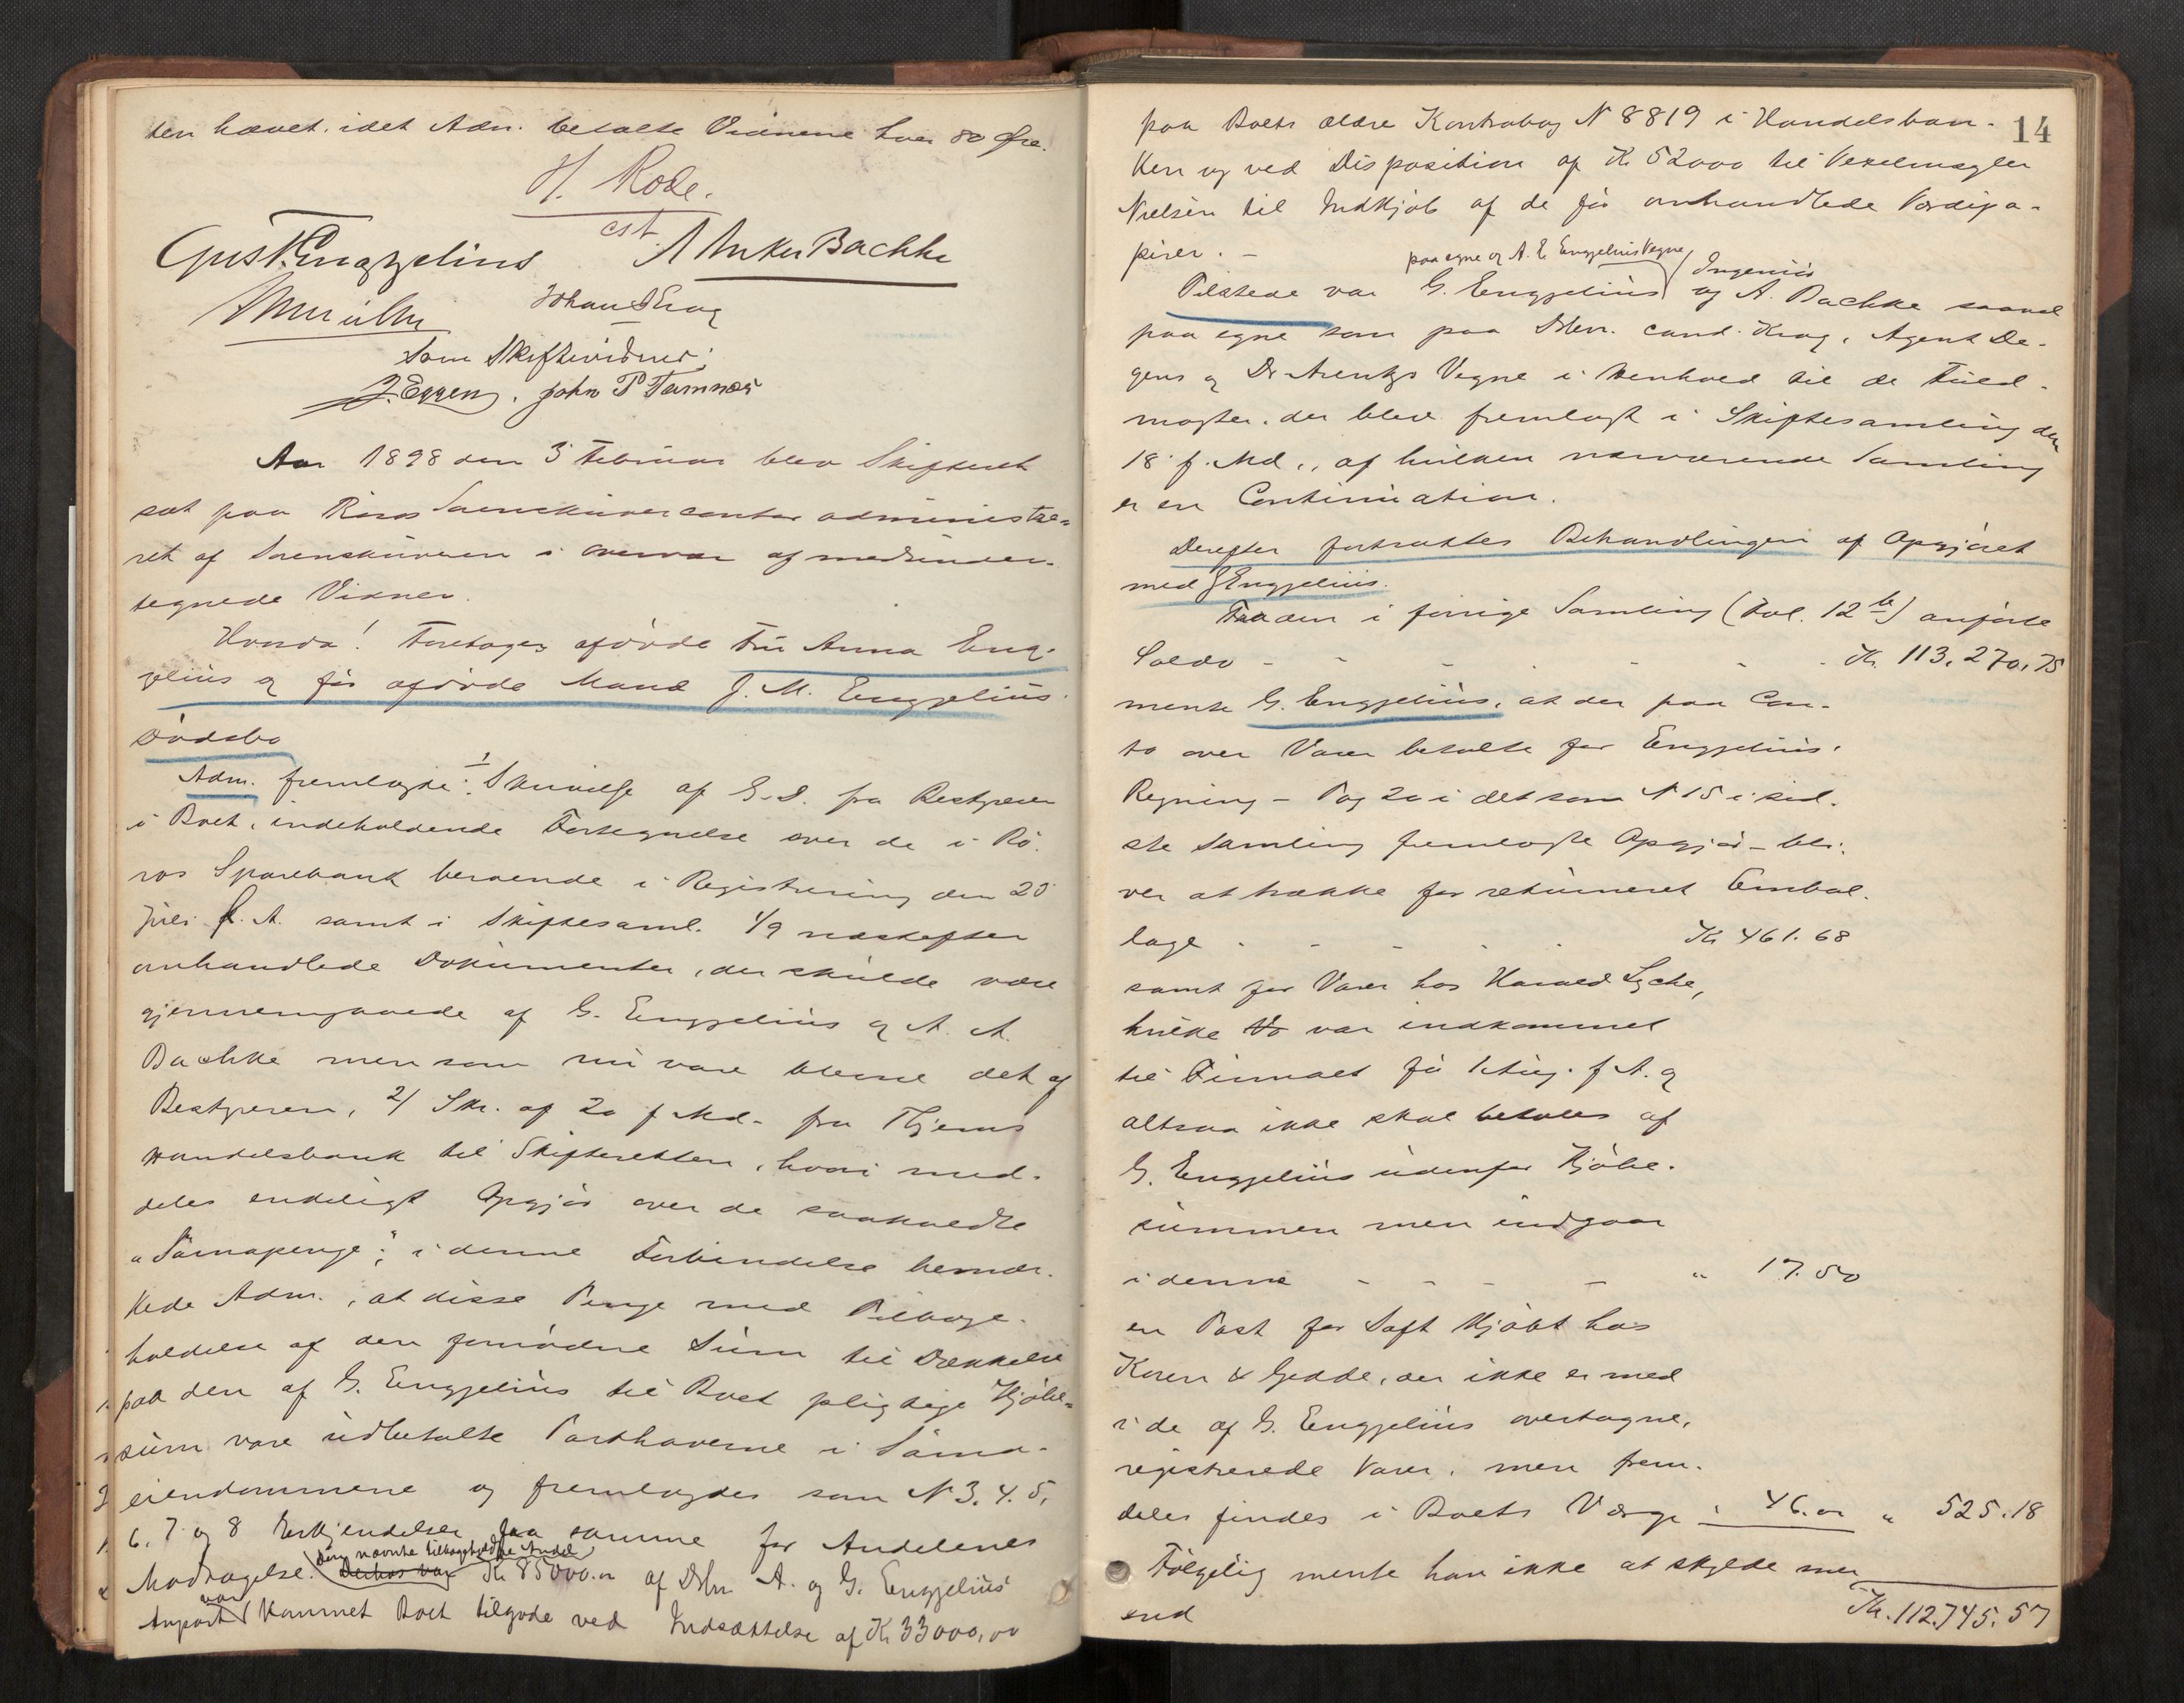 ten hævet, idet Adm. betalte Vidnerne hver 80 Øre.
H. Rode.
cst.
Gust. Engzelius A Anker Bachke
Johan Krag
Som Skiftevidner:
J. Eggen, John P Tamnæs
Aar 1898 den 3 Februar blev Skifteret
sat paa Röros Sorenskrivercontor administre-
ret af Sorenskriveren i Overvær af medunder-
tegnede Vidner.
Hvorda! Foretoges afdøde Fru Anna Eng-
zelius og før afdøde Mand J. M. Engzelius
Dödsbo
Adm. fremlagde: 1 Skrivelse af G. D. fra Bestyreren
i Boet, indeholdende Fortegnelse over de i Rö-
ros Sparebank beroende i Registrering den 20
Juli f. A. samt i Skiftesaml. 1/9 næstefter
omhandlede Dokumenter, der skulde være
gjennemgaaede af G. Engzelius og A. A.
Bachke men som nu vare blevne det af
Bestyreren, 2/ Skr. af 20 f Md. fra Thjems
Handelsbank til Skifteretten, hvori med-
deles endeligt Opgjør over de saakaldte
"Särnapenge"; i denne Forbindelse bemær-
kede Adm., at disse Penge med Tilbage-
holdelse af den fornødne Sum til Dækkelse
paa den af G. Engzelius til Boet pligtige Kjöbe-
sum vare udbetalte Parthaverne i Särna-
eiendommene og fremlagdes som N 3. 4. 5,
6, 7 og 8 Erkjendelser fra samme for Andelenes
den nævnte tilbageholdte Andel
Modtagelse. Derhos var Kr 85000.00 af DHrr A. og G. Engzelius
var
Anpart kommet Boet tilgode ved Indsættelse af Kr 33000,00
14
paa Boets ældre Kontrabog N 8819 i Handelsban-
ken og ved Disposition af Kr 52000 til Vexelmægler
Nielsen til Indkjøb af de før omhandlede Værdipa-
pirer. -
paa egne og A. E. Engzelius Vegne Ingeniør
Tilstede var G. Engzelius og A. Bachke saavel
paa egne som paa DHrr. cand. Krag, Agent De-
gens og Dr Arentz's Vegne i Henhold til de Fuld-
magter, der bleve fremlagt i Skiftesamling den
18 f. Md., af hvilken nærværende Samling
er en Continuation.
Derefter fortsattes Behandlingen af Opgjøret
med G Engzelius.
Fra den i forrige Samling (Fol. 12 b) anførte
Saldo - - - - - - Kr. 113,270,75
mente G. Engzelius, at der paa Con-
to over Varer betalte for Engzelius'
Regning - Pag 20 i det som N 15 i sid-
ste Samling fremlagte Opgjør - bli-
ver at trække for returneret Embal-
lage - - - - - Kr 461.68
samt for Varer hos Harald Lyche,
hvilke Vo var indkommet
til Firmaet før 1 Aug. f A. og
altsaa ikke skal betales af
G. Engzelius udenfor Kjöbe-
summen men indgaar
i denne - - - - " 17.50
en Post for Saft kjöbt hos
Koren & Gedde, der ikke er med
i de af G. Engzelius overtagne,
registrerede Varer, men frem-
deles findes i Boets Værge " 46.00 " 525.18
Følgelig mente han ikke at skylde mer
end Kr. 112.745.57